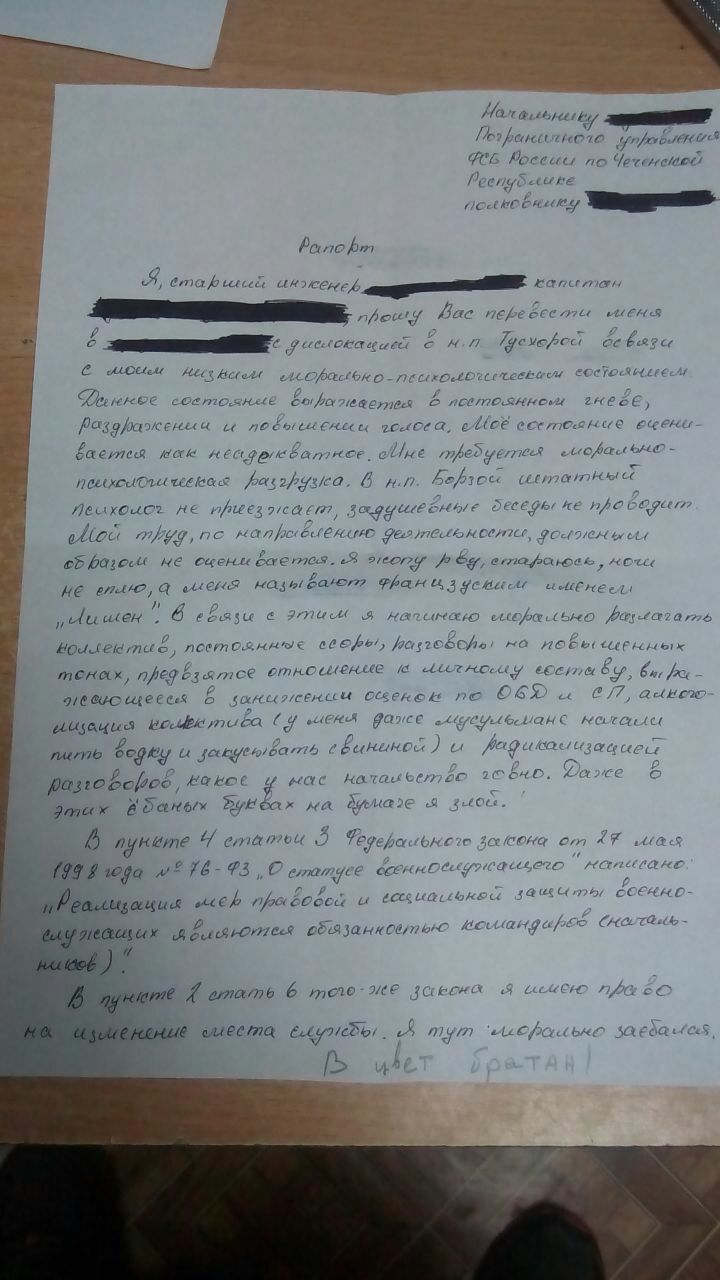 Начальнику
Пограничного управления
ФСБ России по Чеченской
Республике
полковнику
Рапорт
Я, старший инженер, капитан
, прошу Вас перевести меня
в с дислокацией в н.п. Тусхорой всвязи
с моим низким морально-психологическим состоянием.
Данное состояние выражается в постоянном гневе,
раздражении и повышении голоса. Моё состояние оцени-
вается как неадекватное. Мне требуется морально-
психологическая разгрузка. В н.п. Борзой штатный
психолог не приезжает, задушевные беседы не проводит.
Мой труд, по направлению деятельности, должным
образом не оценивается. Я жопу рву, стараюсь, ночи
не сплю, а меня называют французским именем
„Лишен". В связи с этим я начинаю морально разлагать
коллектив, постоянные ссоры, разговоры на повышенных
тонах, предвзятое отношение к личному составу, выра-
жающееся в занижении оценок по ОБД и СП, алкого-
лизация колектива (у меня даже мусульмане начали
пить водку и закусывать свининой) и радикализацией
разговоров, какое у нас начальство говно. Даже в
этих ёбаных буквах на бумаге я злой.
В пункте 4 статьи 3 Федерального закона от 27 мая
1998 года № 76-ФЗ „О статусе военнослужащего" написано:
„Реализация мер правовой и социальной защиты военно-
служащих являются обязанностью командиров (началь-
ников)".
В пункте 2 стать 6 того-же закона я имею право
на изменение места службы. Я тут морально заебался.
В цвет братан!